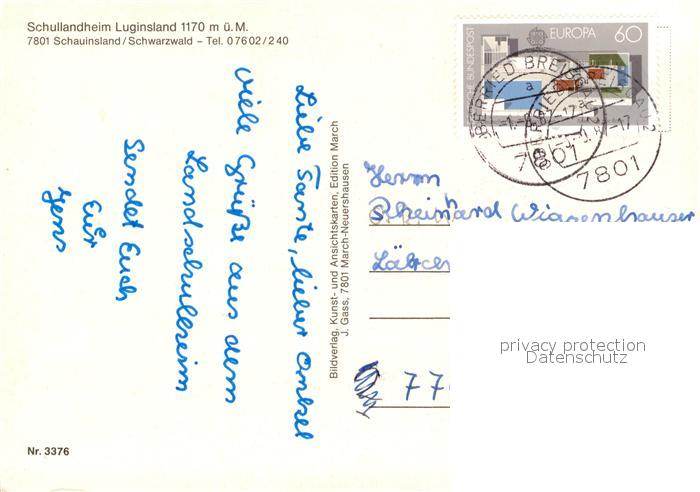 Schullandheim Luginsland 1170 m ü. M.
7801 Schauinsland/Schwarzwald – Tel. 0 76 02 / 2 40
Liebe Tante, lieber Onkel
viele Grüße aus dem
Landschulheim
sendet Euch
Euer
Jens
Bildverlag, Kunst- und Ansichtskarten, Edition March
J. Gass, 7801 March-Neuershausen
DEUTSCHE BUNDESPOST
EUROPA 60
7801
7801
Herrn
Rheinhard
77
privacy protection
Datenschutz
Nr. 3376